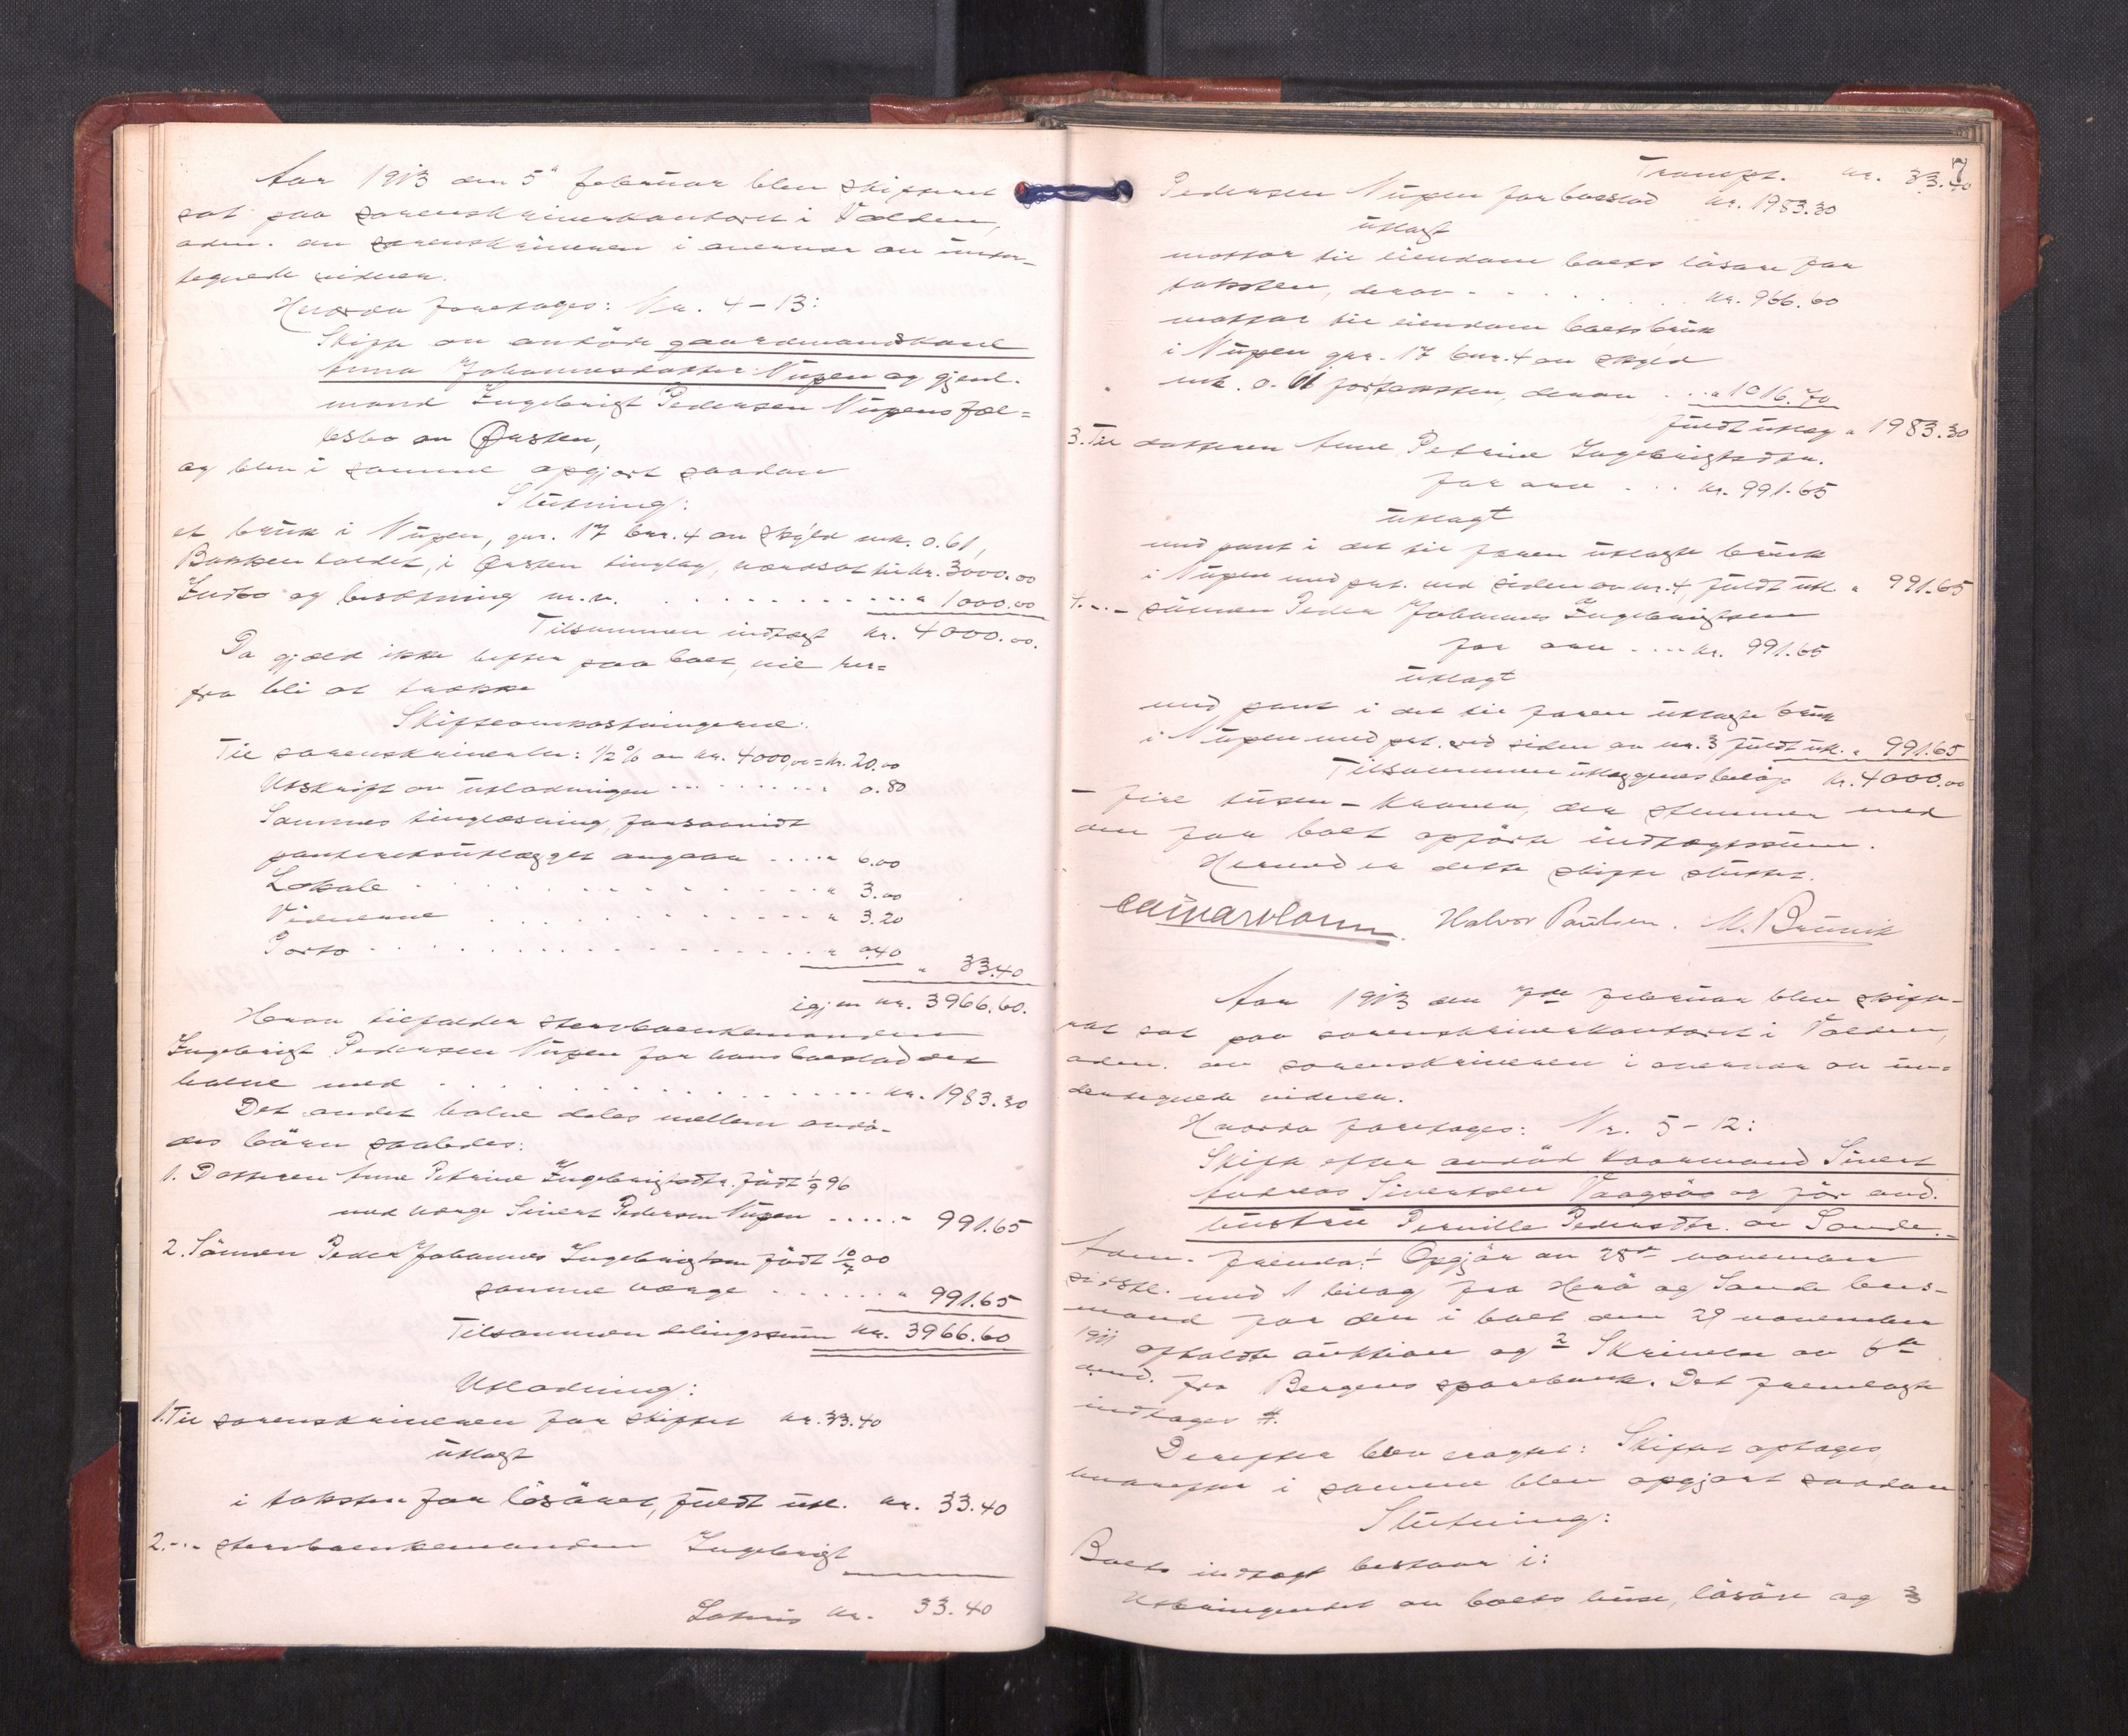 Aar 1913 den 5te februar blev skifteret
sat paa sorenskriverkontoret i Volden,
adm. av sorenskriveren i overvær av under-
tegnede vidner.
Hvorda foretages: Nr. 4-13:
Skifte av avdöde gaardmandskone
Anna Johannesdatter Nupen og gjenl.
mand Ingebrigt Pedersen Nupens fæl=
lesbo av Örsten,
og blev i samme opgjort saadan
Slutning:
et bruk i Nupen, gnr. 17 bnr. 4 av skyld mk. 0.61,
Bakken kaldet, i Örsten tinglag, værdsat til kr. 3000.00
Indbo og besætning m.v. . . . . . . . . . " 1000.00
Tilsammen indtægt kr. 4000.00.
Da gjæld ikke hefter paa boet, vil her=
fra bli at trække
Skifteomkostningerne:
Til sorenskriveren: 1/2 % av kr. 4000,00 = kr. 20.00
Utskrift av utlodningen . . . . . . . " 0.80
Sammes tinglæsning, forsaavidt
panteretsutlægget angaar . . . . " 6.00
Lokale . . . . . . . . . . . . " 3.00
Vidnerne . . . . . . . . . . . " 3.20
Porto . . . . . . . . . . . . . " 0.40
" 33.40
igjen kr. 3966.60.
Herav tilfalder sterboenkemanden
Ingebrigt Pedersen Nupen for hans boeslod det
halve med . . . . . . . . . . . . kr. 1983.30
Det andet halve deles mellem avdö-
des börn saaledes:
1. Datteren Anne Petrine Ingebrigtsdtr. födt 1/9 96
med værge Sivert Pedersen Nupen . . . . . " 991.65
2. Sönnen Peder Johannes Ingebrigtsen födt 10/7 00
samme værge . . . . . . . " 991.65
Tilsammen delingssum kr. 3966.60
Utlodning:
1. Til sorenskriveren for skiftet kr. 33.40
utlagt
i taksten for lösöret, fuldt utl. kr. 33.40
2. - " - sterboenkemanden Ingebrigt
Lateris kr. 33.40
7
Transpt. kr. 33.40
Pedersen Nupen for boeslod kr. 1983.30
utlagt
mottar til eiendom boets lösöre for
taksten, derav - . . . . . . . kr. 966.60
mottar til eiendom boets bruk
i Nupen gnr. 17 bnr. 4 av skyld
mk. 0.61 for taksten, derav . . . " 1016.70
fuldt utlæg " 1983.30
3. Til datteren Anne Petrine Ingebrigtsdtr.
for arv . . . kr. 991.65
utlagt
med pant i det til faren utlagte bruk
i Nupen med prt. ved siden av nr. 4, fuldt utl. " 991.65
4. - " - sönnen Peder Johannes Ingebrigtsen
for arv . . . . kr. 991.65
utlagt
med pant i det til faren utlagte bruk
i Nupen med prt. ved siden av nr. 3 fuldt utl. " 991.65
Tilsammen utlæggenes belöp kr. 4000.00
- fire tusen - kroner, der stemmer med
den for boet opförte indtægtssum.
Hermed er dette skifte sluttet.
Halvor Paulsen. M. Brunnik
Aar 1913 den 7de februar blev skifte-
ret sat paa sorenskriverkontoret i Volden,
adm. av sorenskriveren i overvær av un-
dertegnede vidner.
Hvorda foretages: Nr. 5-12:
Skifte efter avdöd kaarmand Sivert
Andreas Sivertsen Vaagsös og för avd.
hustru Pernille Pedersdtr. av Sande.
Adm. fremla: Opgjör av 28de november
sidstl. med 1 bilag fra Herö og Sande lens-
mand for den i boet den 29 november
1911 avholdte auktion og 2 Skrivelse av 6te
dmd. fra Bergens sparebank. Det fremlagte
indtages #.
Derefter blev eragtet: Skiftet optages,
hvorefter i samme blev opgjort saadan
Slutning:
Boets indtægt bestaar i:
Utbringendet av boets huse, lösöre og 3